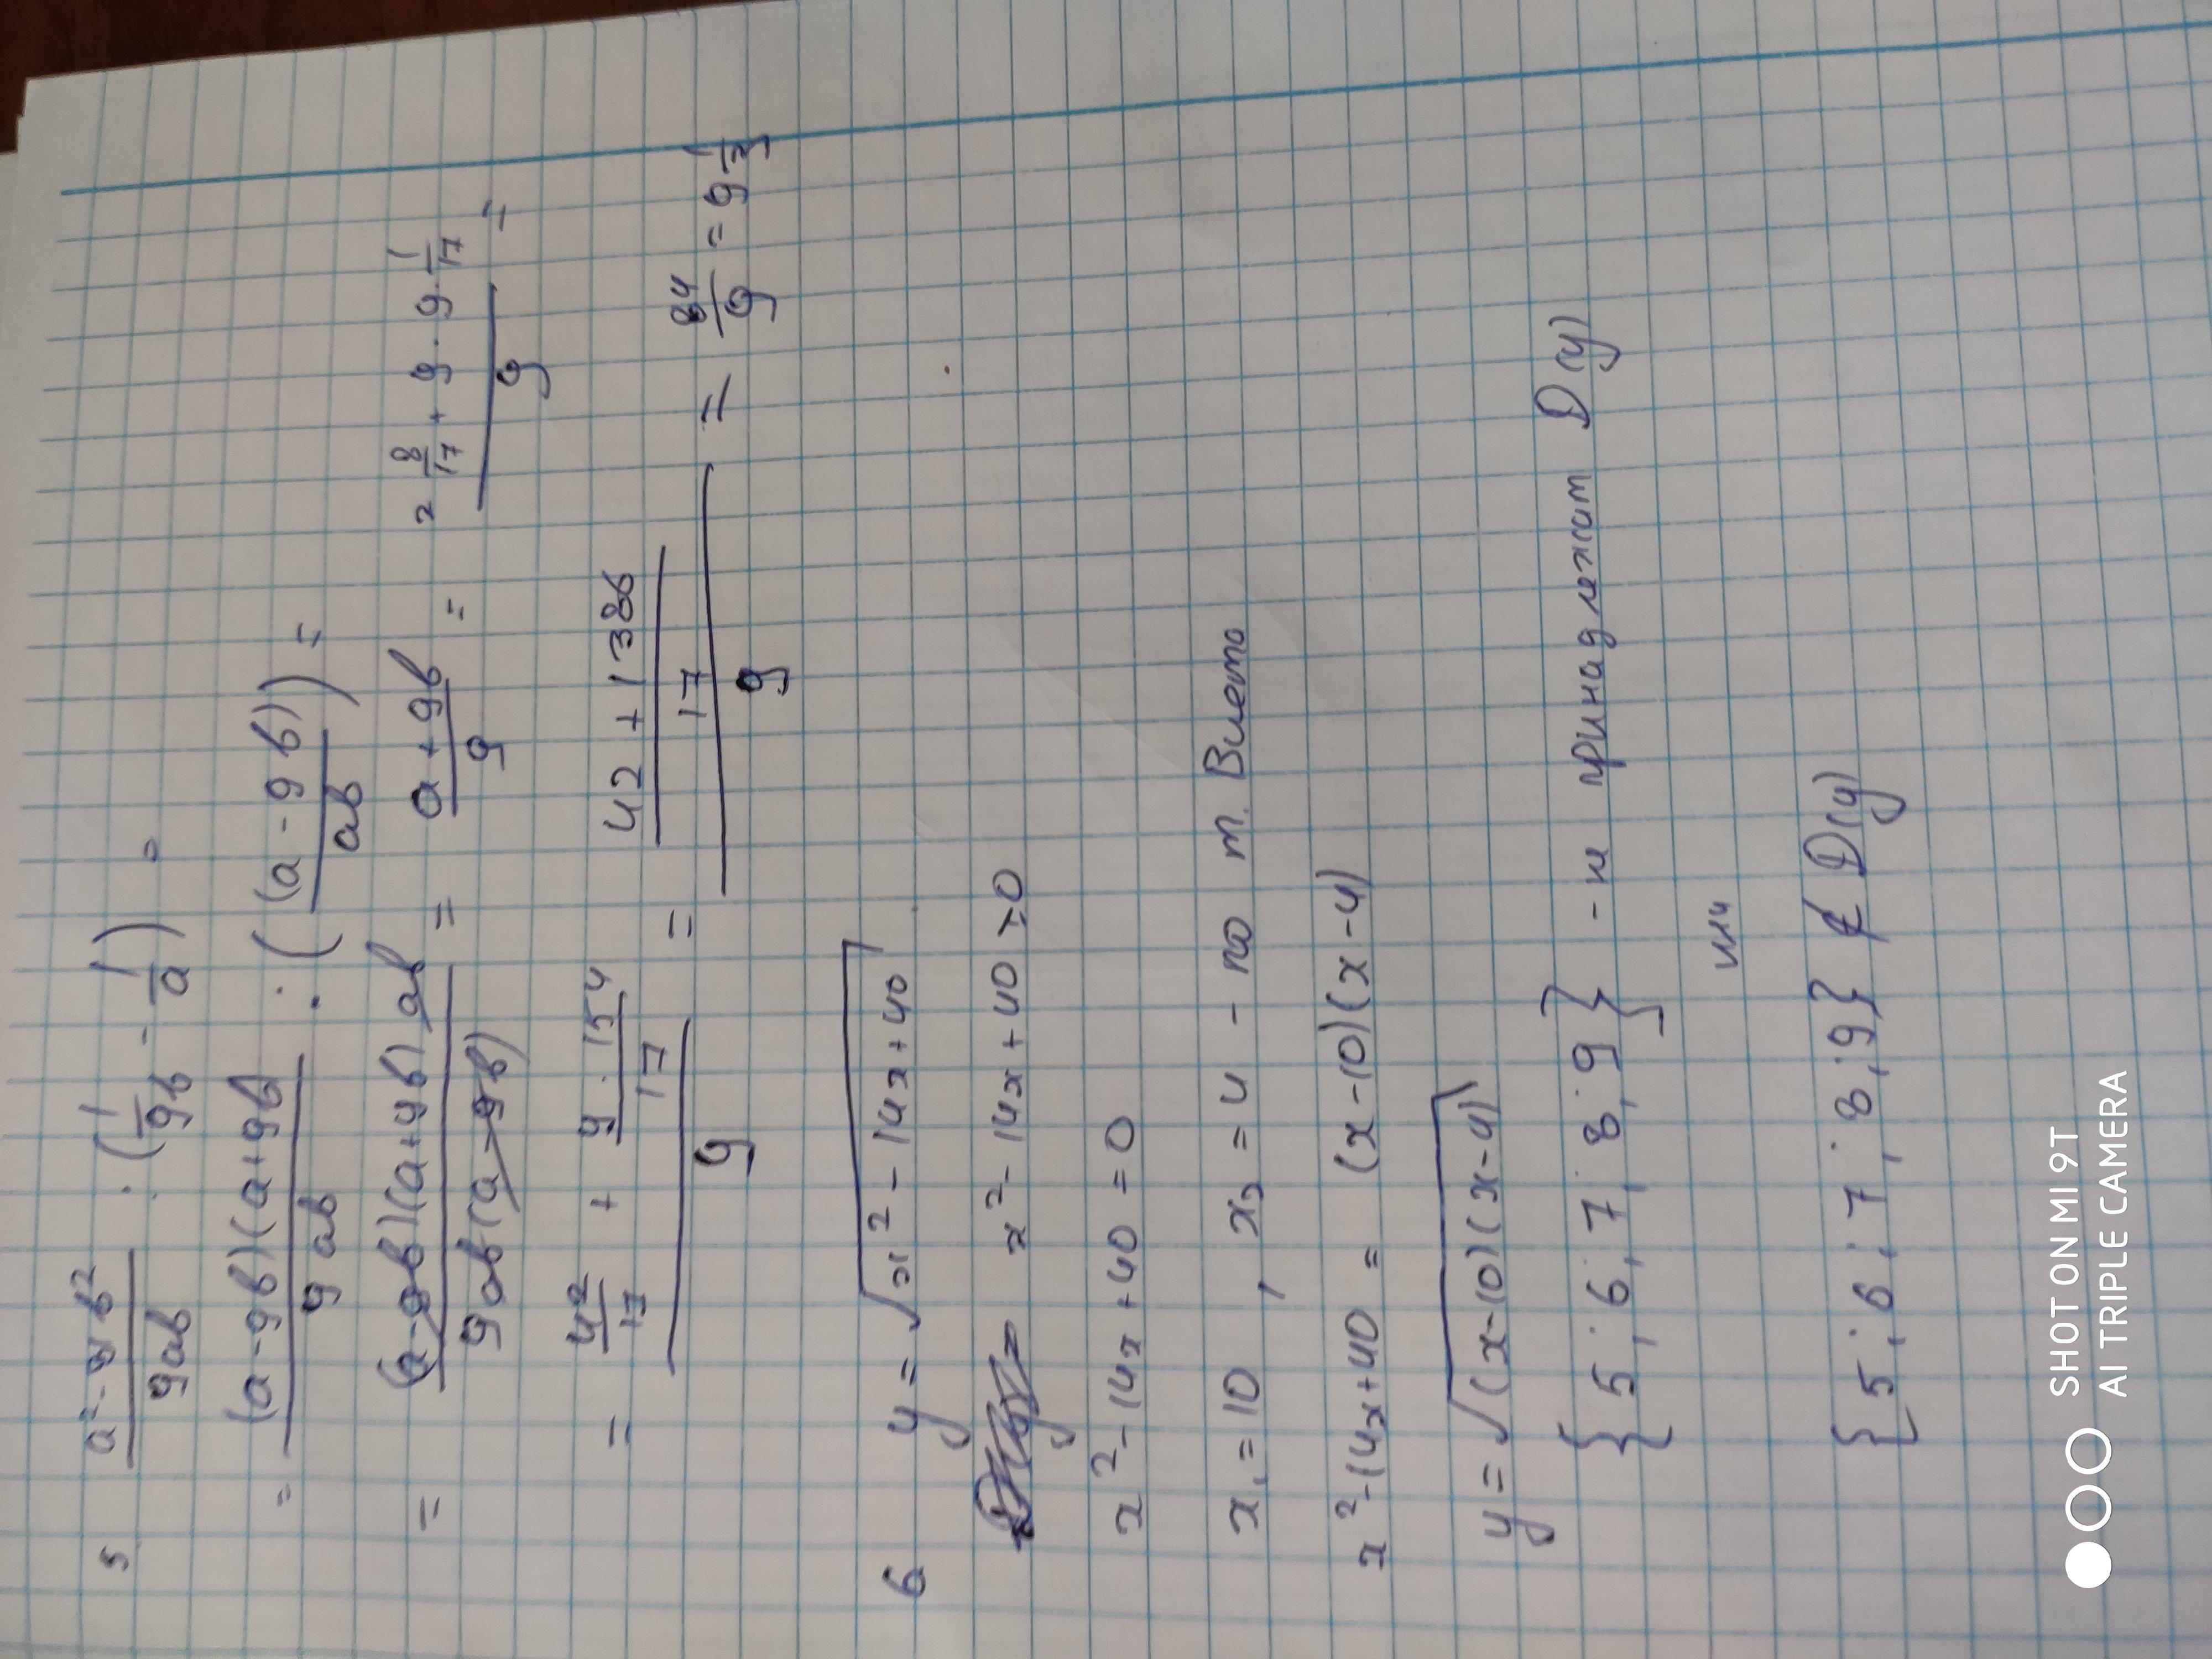 5 (a² - 81b²)/(9ab) : (1/(9b) - 1/a) =
= ((a-9b)(a+9b))/(9ab) : ((a-9b))/(ab)) =
= ((a-9b)(a+9b) ab)/(9ab(a-9b)) = (a+9b)/9 = (2 8/17 + 9 · 9 1/17)/9 =
= (42/17 + (9 · 154)/17)/9 = ((42 + 1386)/17)/9 = 84/9 = 9 1/3
6 y = √(x² - 14x + 40)
x² - 14x + 40 ≥ 0
x² - 14x + 40 = 0
x₁ = 10 , x₂ = 4 - по т. Виета
x² - 14x + 40 = (x - 10)(x - 4)
y = √((x-10)(x-4))
{5; 6; 7; 8; 9} - не принадлежат D(y)
или
{5; 6; 7; 8; 9} ∉ D(y)
SHOT ON MI 9T
AI TRIPLE CAMERA